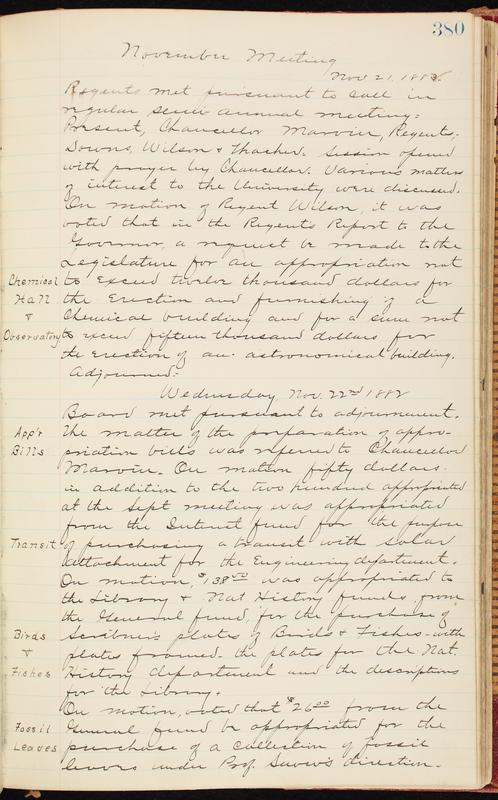 380
November Meeting
Nov 21. 1882
Regents met pursuant to call in
regular semi annual meeting:
Present, Chancellor Marvin, Regents:
Downs, Wilson & Thacher. Session opened
with prayer by Chancellor. Various matters
of interest to the University were discussed.
On motion of Regent Wilson, it was
voted that in the Regents Report to the
Governor, a request be made to the
Legislature for an appropriation not
Chemical to exceed twelve thousand dollars for
Hall the Erection and furnishing of a
& Chemical building and for a sum not
Observatory to exceed fifteen thousand dollars for
the Erection of an astronomical building.
Adjourned.
Wednesday, Nov. 22nd 1882
Board met pursuant to adjournment.
App'r The matter of the preparation of appro-
Bills priation bills was referred to Chancellor
Marvin. On motion fifty dollars
in addition to the two hundred appropriated
at the Sept meeting was appropriated
from the Interest fund for the purpose
Transit of purchasing a transit with solar
attachment for the Engineering department.
On motion, $138.00 was appropriated to
the Library & Nat History funds from
the General fund, for the purchase of
Birds Scribner's plates of Birds & Fishes - with
& plates framed. the plates for the Nat.
Fishes History department and the descriptions
for the Library.
On motion, voted that $26.00 from the
Fossil General fund be appropriated for the
Leaves purchase of a collection of fossil
leaves under Prof. Snow's direction.